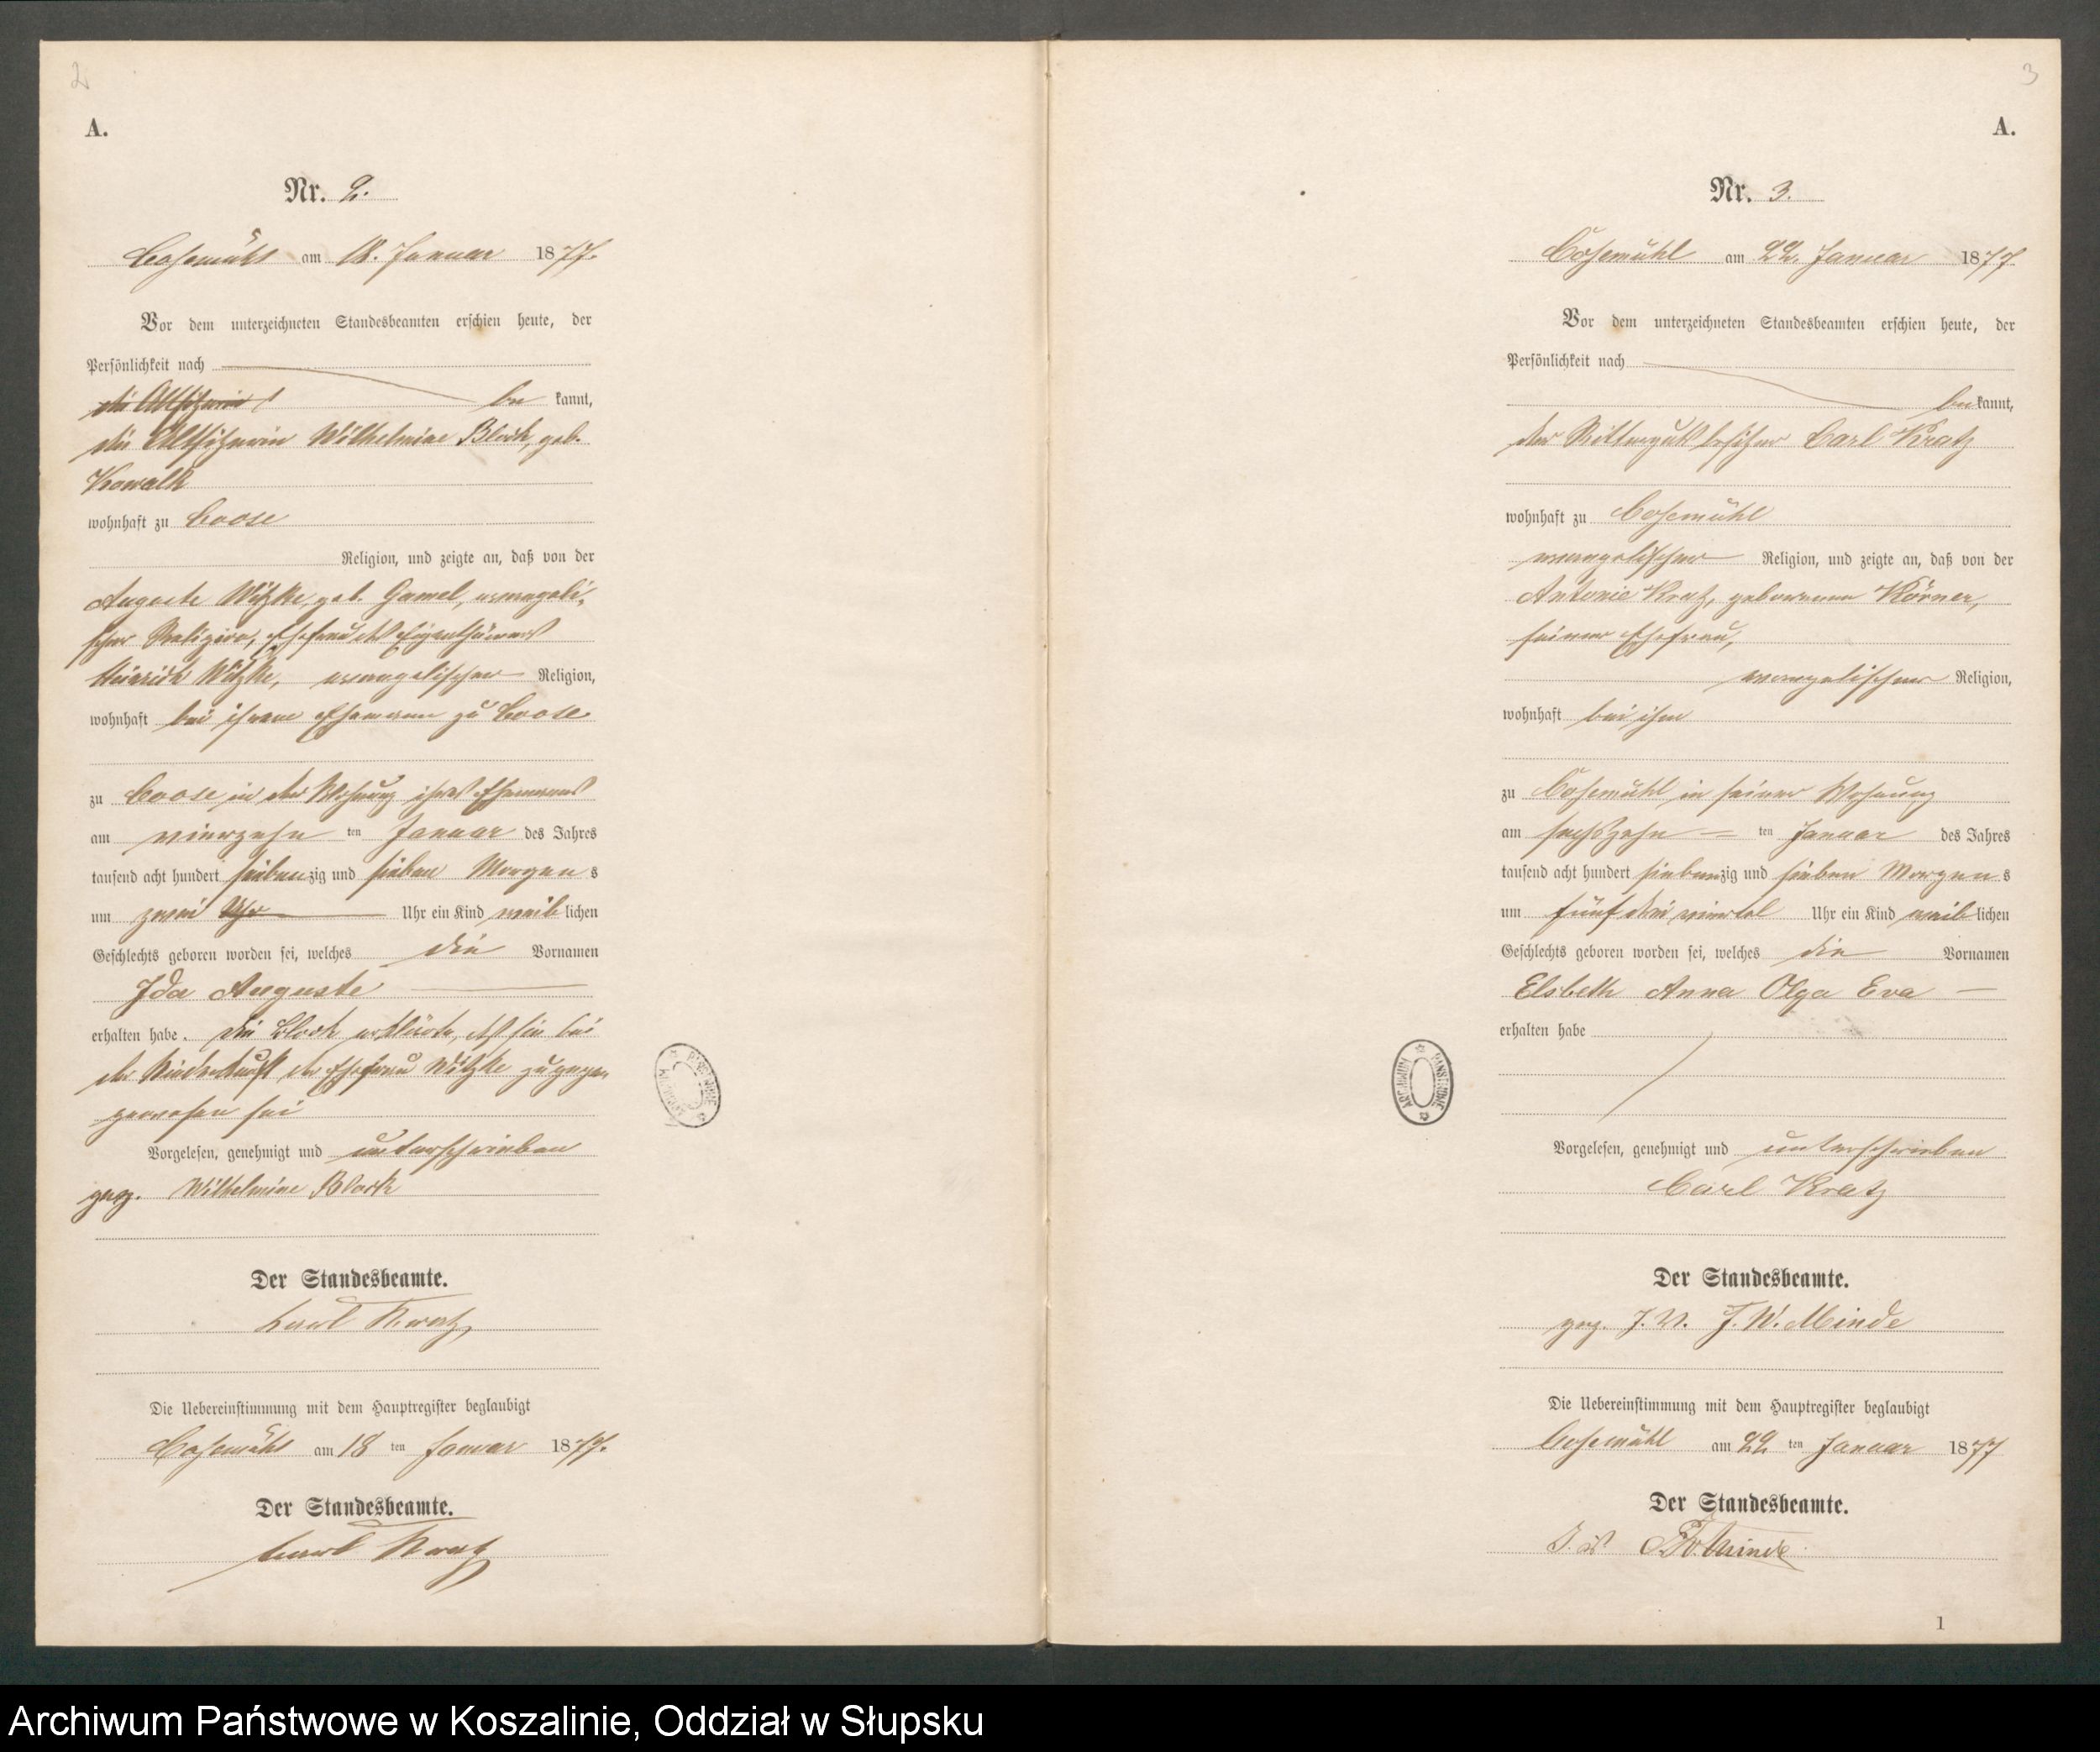 2
A.
Nr. 2.
Cosemühl am 18. Januar 1877.
Vor dem unterzeichneten Standesbeamten erschien heute, der
Persönlichkeit nach
die Altsitzerin bekannt,
die Altsitzerin Wilhelmine Block, geb.
Kowalk
wohnhaft zu Coose
Religion, und zeigte an, daß von der
Auguste Witzke, geb. Gamel, evangeli-
scher Religion, Ehefrau des Eigenthümers
Heinrich Witzke, evangelischer Religion,
wohnhaft bei ihrem Ehemann zu Coose
zu Coose in der Wohnung ihres Ehemanns
am vierzehn ten Januar des Jahres
tausend acht hundert siebenzig und sieben Morgens
um zwei Uhr Uhr ein Kind weiblichen
Geschlechts geboren worden sei, welches die Vornamen
Ida Auguste
erhalten habe. Die Block erklärte, daß sie bei
der Niederkunft der Ehefrau Witzke zugegen
gewesen sei
Vorgelesen, genehmigt und unterschrieben
gez. Wilhelmine Block
Der Standesbeamte.
Carl Kratz
Die Uebereinstimmung mit dem Hauptregister beglaubigt
Cosemühl am 18 ten Januar 1877.
Der Standesbeamte.
Carl Kratz
ARCHIWUM PAŃSTWOWE
3
A.
Nr. 3.
Cosemühl am 22. Januar 1877
Vor dem unterzeichneten Standesbeamten erschien heute, der
Persönlichkeit nach
bekannt,
der Rittergutsbesitzer Carl Kratz
wohnhaft zu Cosemühl
evangelischer Religion, und zeigte an, daß von der
Antonie Kratz, geborenen Körner,
seiner Ehefrau,
evangelischer Religion,
wohnhaft bei ihm
zu Cosemühl in seiner Wohnung
am sechszehn ten Januar des Jahres
tausend acht hundert siebenzig und sieben Morgens
um fünf drei viertel Uhr ein Kind weiblichen
Geschlechts geboren worden sei, welches die Vornamen
Elsbeth Anna Olga Eva
erhalten habe
Vorgelesen, genehmigt und unterschrieben
Carl Kratz
Der Standesbeamte.
gez. J. V. F. W. Minde
Die Uebereinstimmung mit dem Hauptregister beglaubigt
Cosemühl am 22 ten Januar 1877
Der Standesbeamte.
J. V. F. W. Minde
ARCHIWUM PAŃSTWOWE
1
Archiwum Państwowe w Koszalinie, Oddział w Słupsku